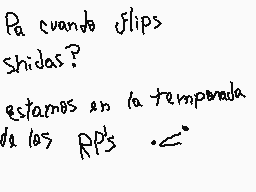 Pa cuando flips
shidas?
estamos en la temporada
de los RP's .<'